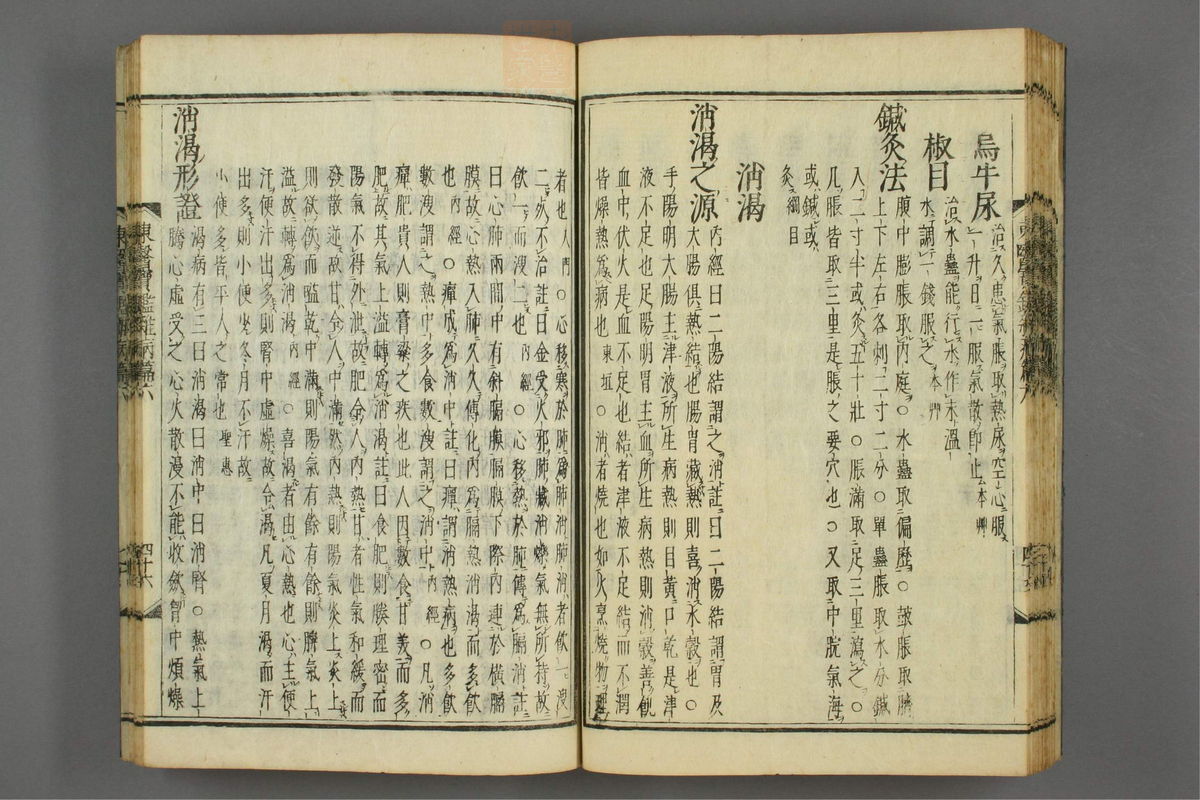 烏牛尿
治久患氣脹取熱尿空心服
一升日一服氣散即止本艸
椒目
治水蠱能行水作末溫
水調一錢服之本艸
鍼灸法
腹中膨脹取內庭○水蠱取偏歷○鼓脹取臍
上下左右各刺二寸二分○單蠱脹取水分鍼
入二寸半或灸五十壯○脹滿取足三里瀉之○
凡脹皆取三里是脹之要穴也○又取中脘氣海
或鍼或
灸綱目
消渴
消渴之源
內經曰二陽結謂之消註曰二陽結謂胃及
大腸俱熱結也腸胃藏熱則喜消水穀也○
手陽明大腸主津液所生病熱則目黃口乾是津
液不足也足陽明胃主血所生病熱則消穀善飢
血中伏火是血不足也結者津液不足結而不潤
皆燥熱爲病也東垣○消者燒也如火烹燒物理
者也入門○心移寒於肺爲肺消肺消者飲一溲
二死不治註曰金受火邪肺藏消爍氣無所持故
飲一而溲二也內經○心移熱於肺傳爲膈消註
曰心肺兩間中有斜膈膜膈膜下際內連於橫膈
膜故心熱入肺久久傳化內爲膈熱消渴而多飲
也內經○癉成爲消中註曰癉謂消熱病也多飲
數溲謂之熱中多食數溲謂之消中內經○凡消
癉肥貴人則膏粱之疾也此人因數食甘美而多
肥故其氣上溢轉爲消渴註曰食肥則腠理密而
陽氣不得外泄故肥令人內熱甘者性氣和緩而
發散逆故甘令人中滿然內熱則陽氣炎上炎上
則欲飲而嗌乾中滿則陽氣有餘有餘則脾氣上
溢故轉爲消渴內經○喜渴者由心熱也心主便
汗便汗出多則腎中虛燥故令渴凡夏月渴而汗
出多則小便少冬月不汗故
小便多皆平人之常也聖惠
消渴形證
渴病有三曰消渴曰消中曰消腎○熱氣上
騰心虛受之心火散漫不能收斂胷中煩燥